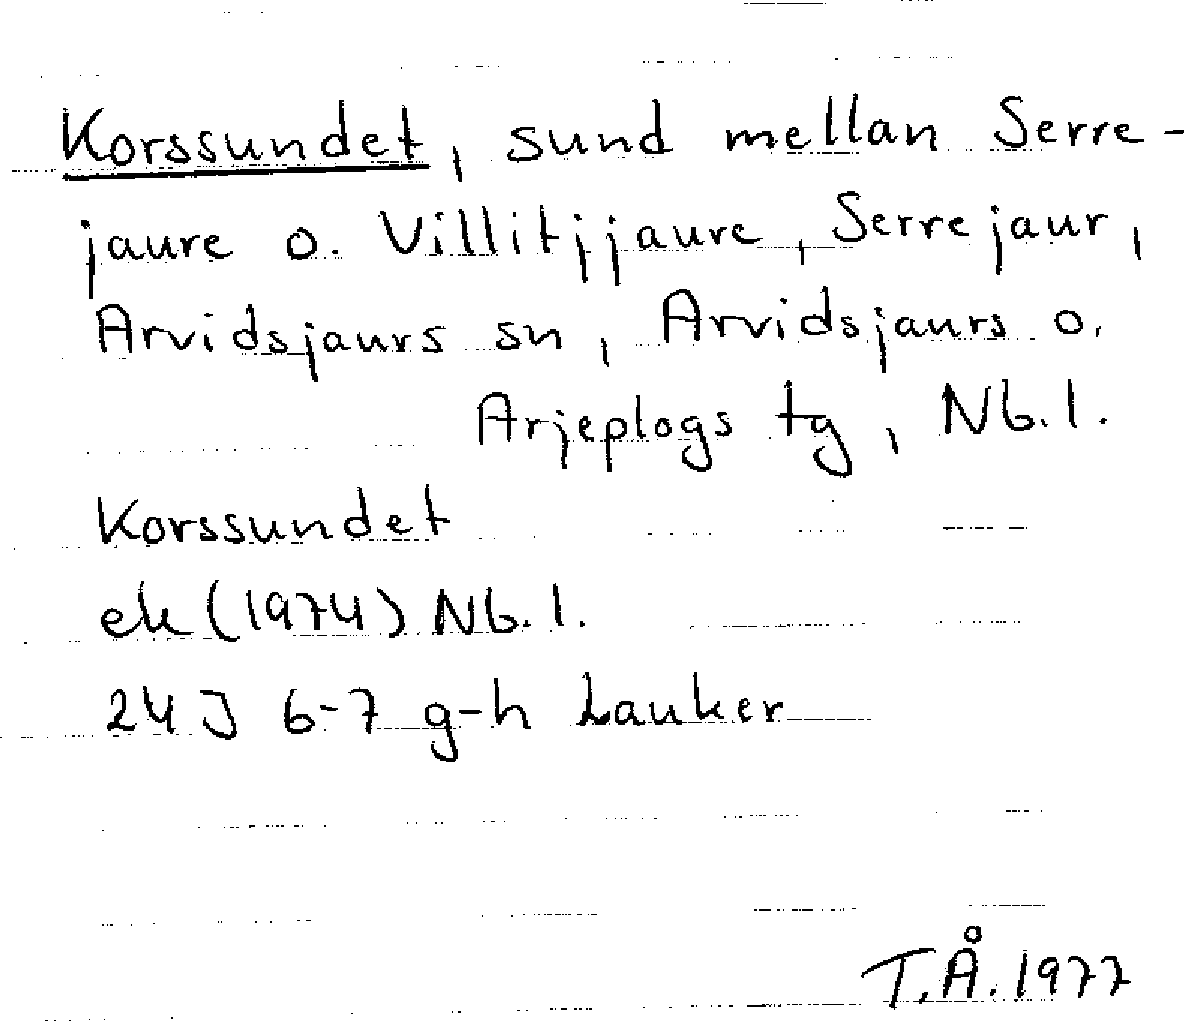 Korssundet, sund mellan Serre-
jaure o. Villitjjaure, Serrejaur,
Arvidsjaurs sn, Arvidsjaurs o.
Arjeplogs tg, Nb. l.
Korssundet
ek (1974) Nb. l.
24 J 6-7 g-h Lauker
T.Å. 1977